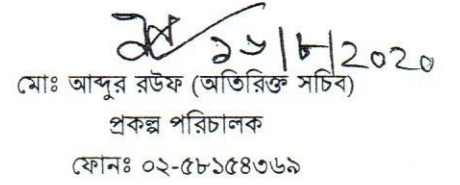 ১৬/৮/2020
মোঃ আব্দুর রউফ (অতিরিক্ত সচিব)
প্রকল্প পরিচালক
ফোনঃ ০২-৫৮১৫৪৩৬৯